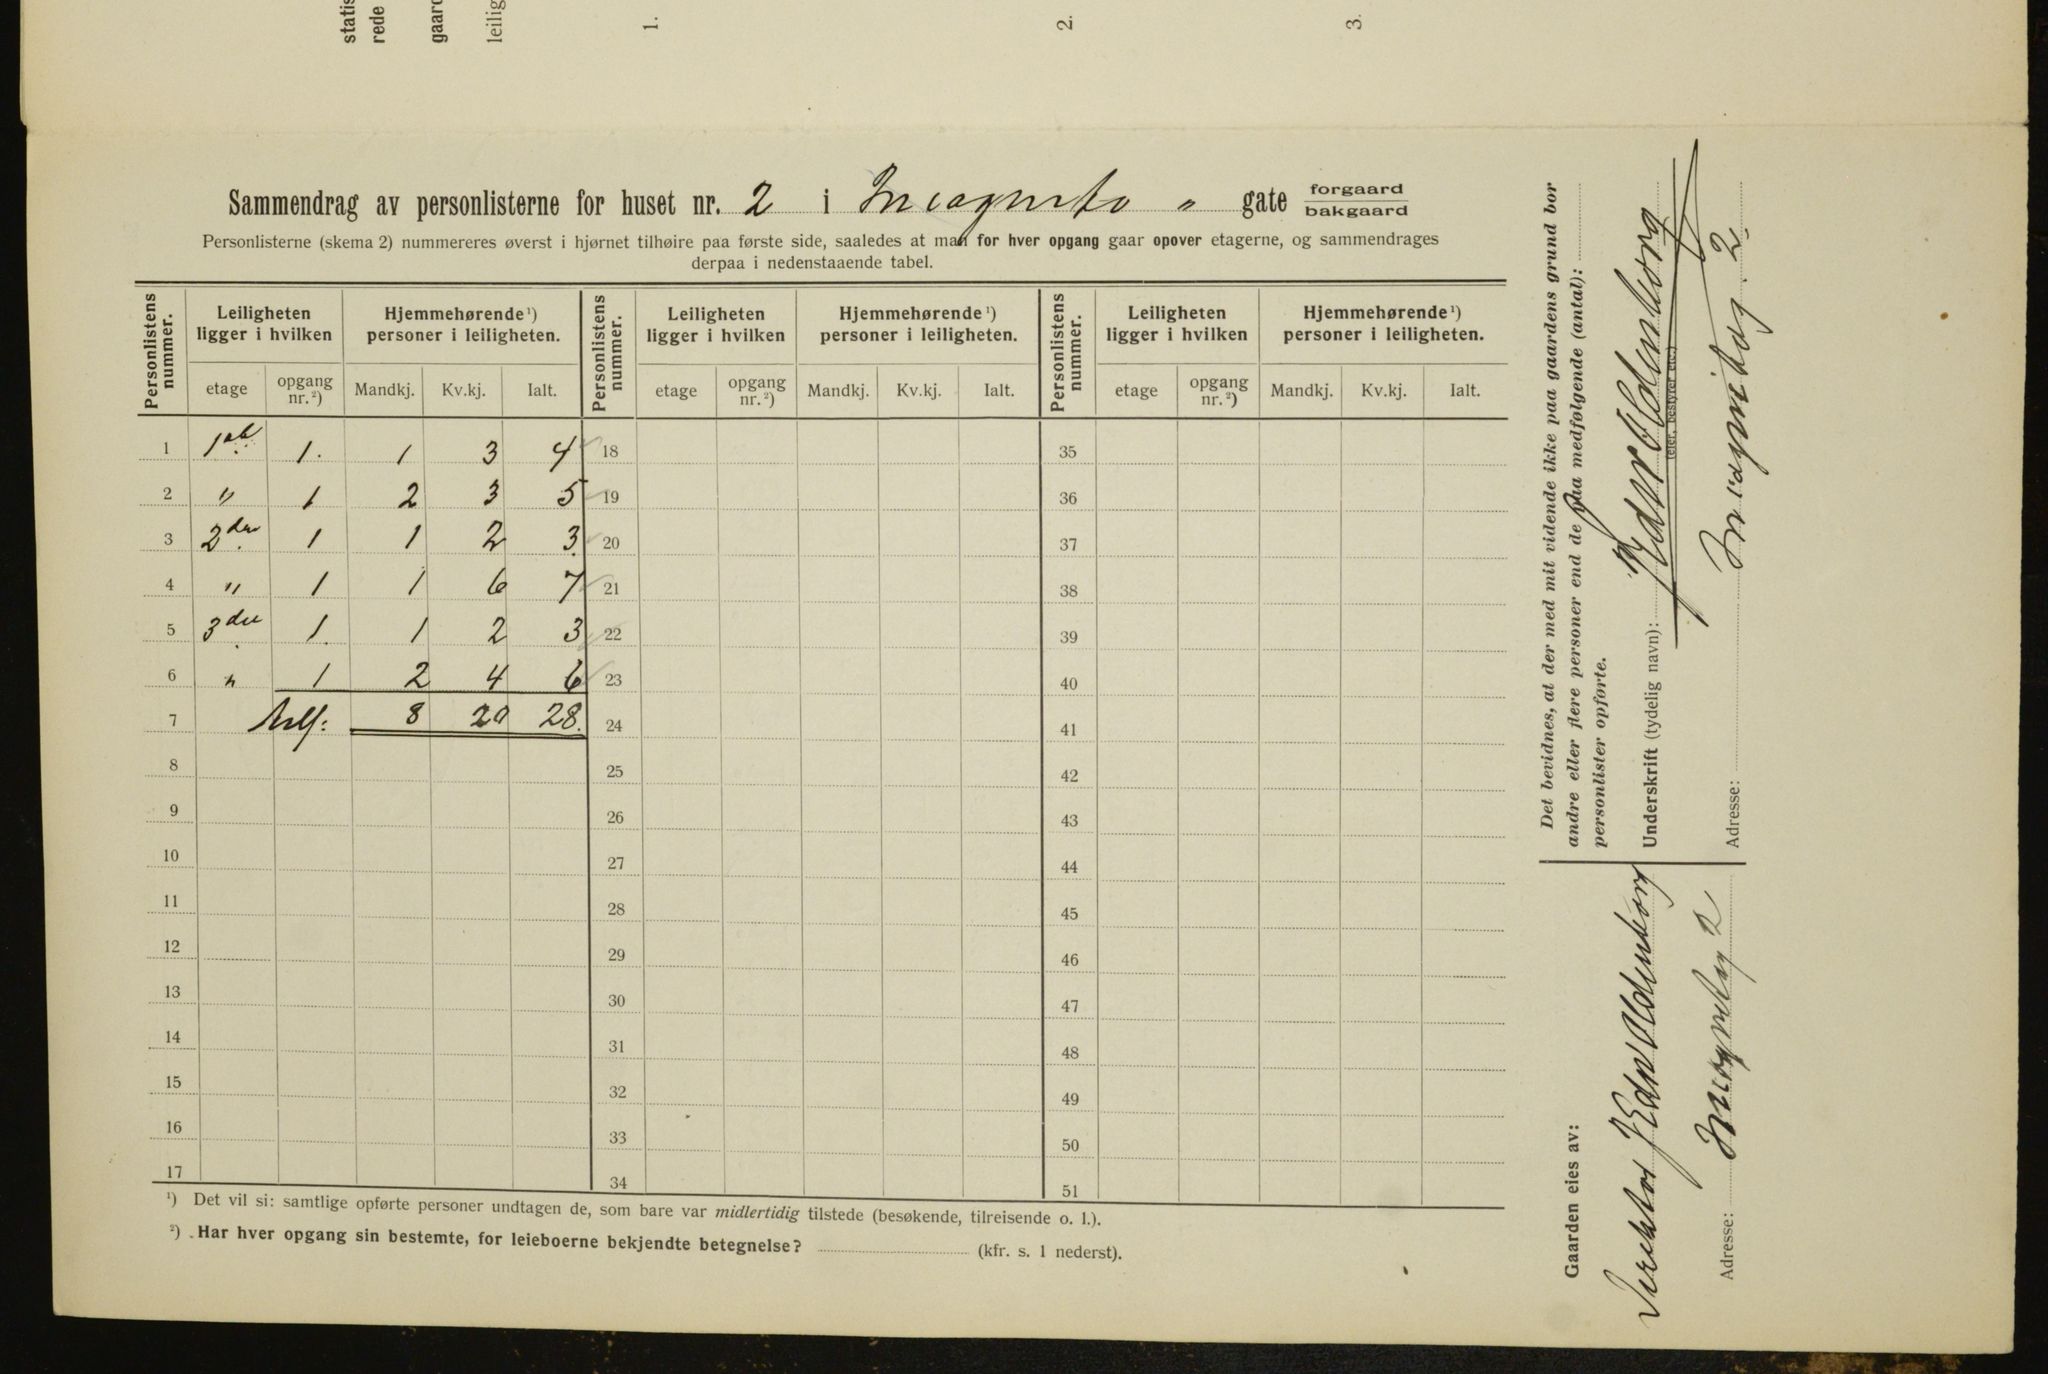 statis
rede
gaard
leilig
1.
2.
3.
Sammendrag av personlisterne for huset nr. 2 i Incognito " gate forgaard
bakgaard
Personlisterne (skema 2) nummereres øverst i hjørnet tilhøire paa første side, saaledes at man for hver opgang gaar opover etagerne, og sammendrages
derpaa i nedenstaaende tabel.
Personlistens nummer. Leiligheten ligger i hvilken Hjemmehørende ¹) personer i leiligheten. Personlistens nummer. Leiligheten ligger i hvilken Hjemmehørende ¹) personer i leiligheten. Personlistens nummer. Leiligheten ligger i hvilken Hjemmehørende ¹) personer i leiligheten.
etage opgang nr. ²) Mandkj. Kv.kj. Ialt. etage opgang nr. ²) Mandkj. Kv.kj. Ialt. etage opgang nr. ²) Mandkj. Kv.kj. Ialt.
1 1ste 1. 1 3 4 18 35
2 " 1 2 3 5 19 36
3 2den 1 1 2 3. 20 37
4 " 1 1 6 7 21 38
5 3die 1. 1 2 3 22 39
6 " 1 2 4 6 23 40
7 8 20 28. 24 41
8 25 42
9 26 43
10 27 44
11 28 45
12 29 46
13 30 47
14 31 48
15 32 49
16 33 50
17 34 51
¹) Det vil si: samtlige opførte personer undtagen de, som bare var midlertidig tilstede (besøkende, tilreisende o. l.).
²) Har hver opgang sin bestemte, for leieboerne bekjendte betegnelse? (kfr. s. 1 nederst).
Det bevidnes, at der med mit vidende ikke paa gaardens grund bor
andre eller flere personer end de paa medfølgende (antal):
personlister opførte.
Underskrift (tydelig navn):
(eier, bestyrer etc.)
Adresse: Incognitog. 2.
Gaarden eies av:
Direktør
Adresse: Incognitog 2